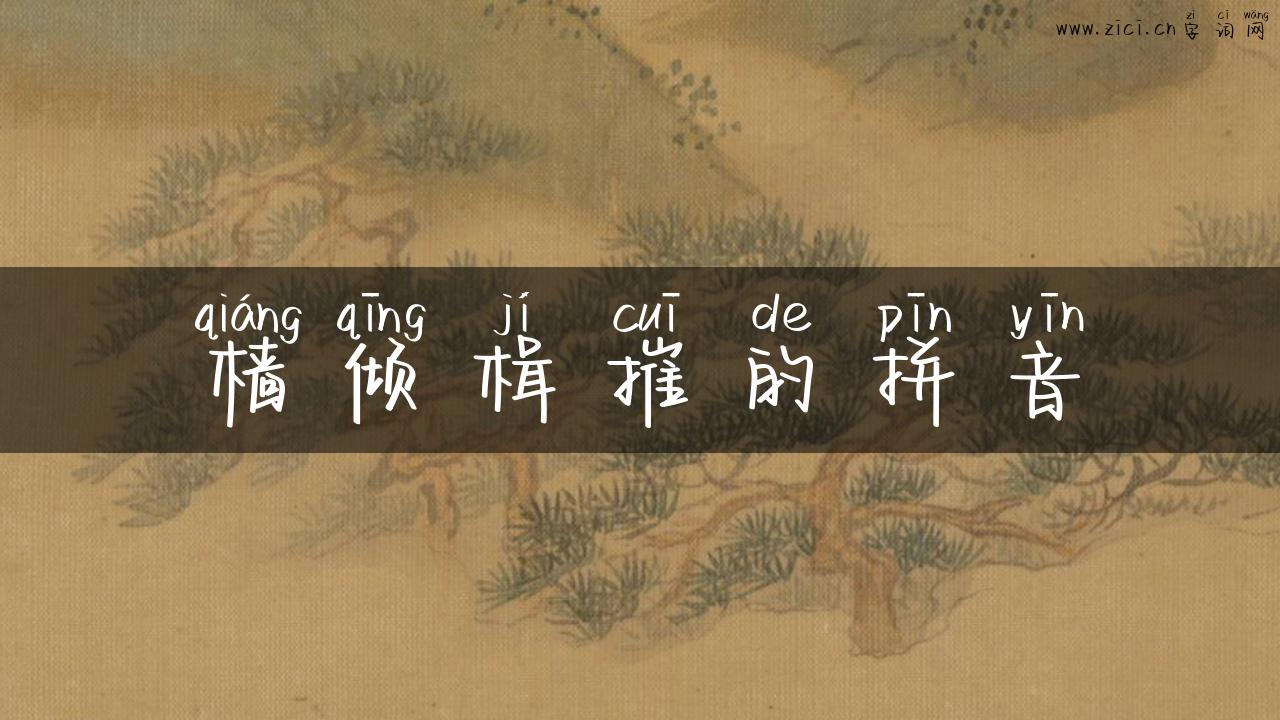 zì cí wǎng
www.zici.cn 字词网
qiáng qīng jí cuī de pīn yīn
樯倾楫摧的拼音